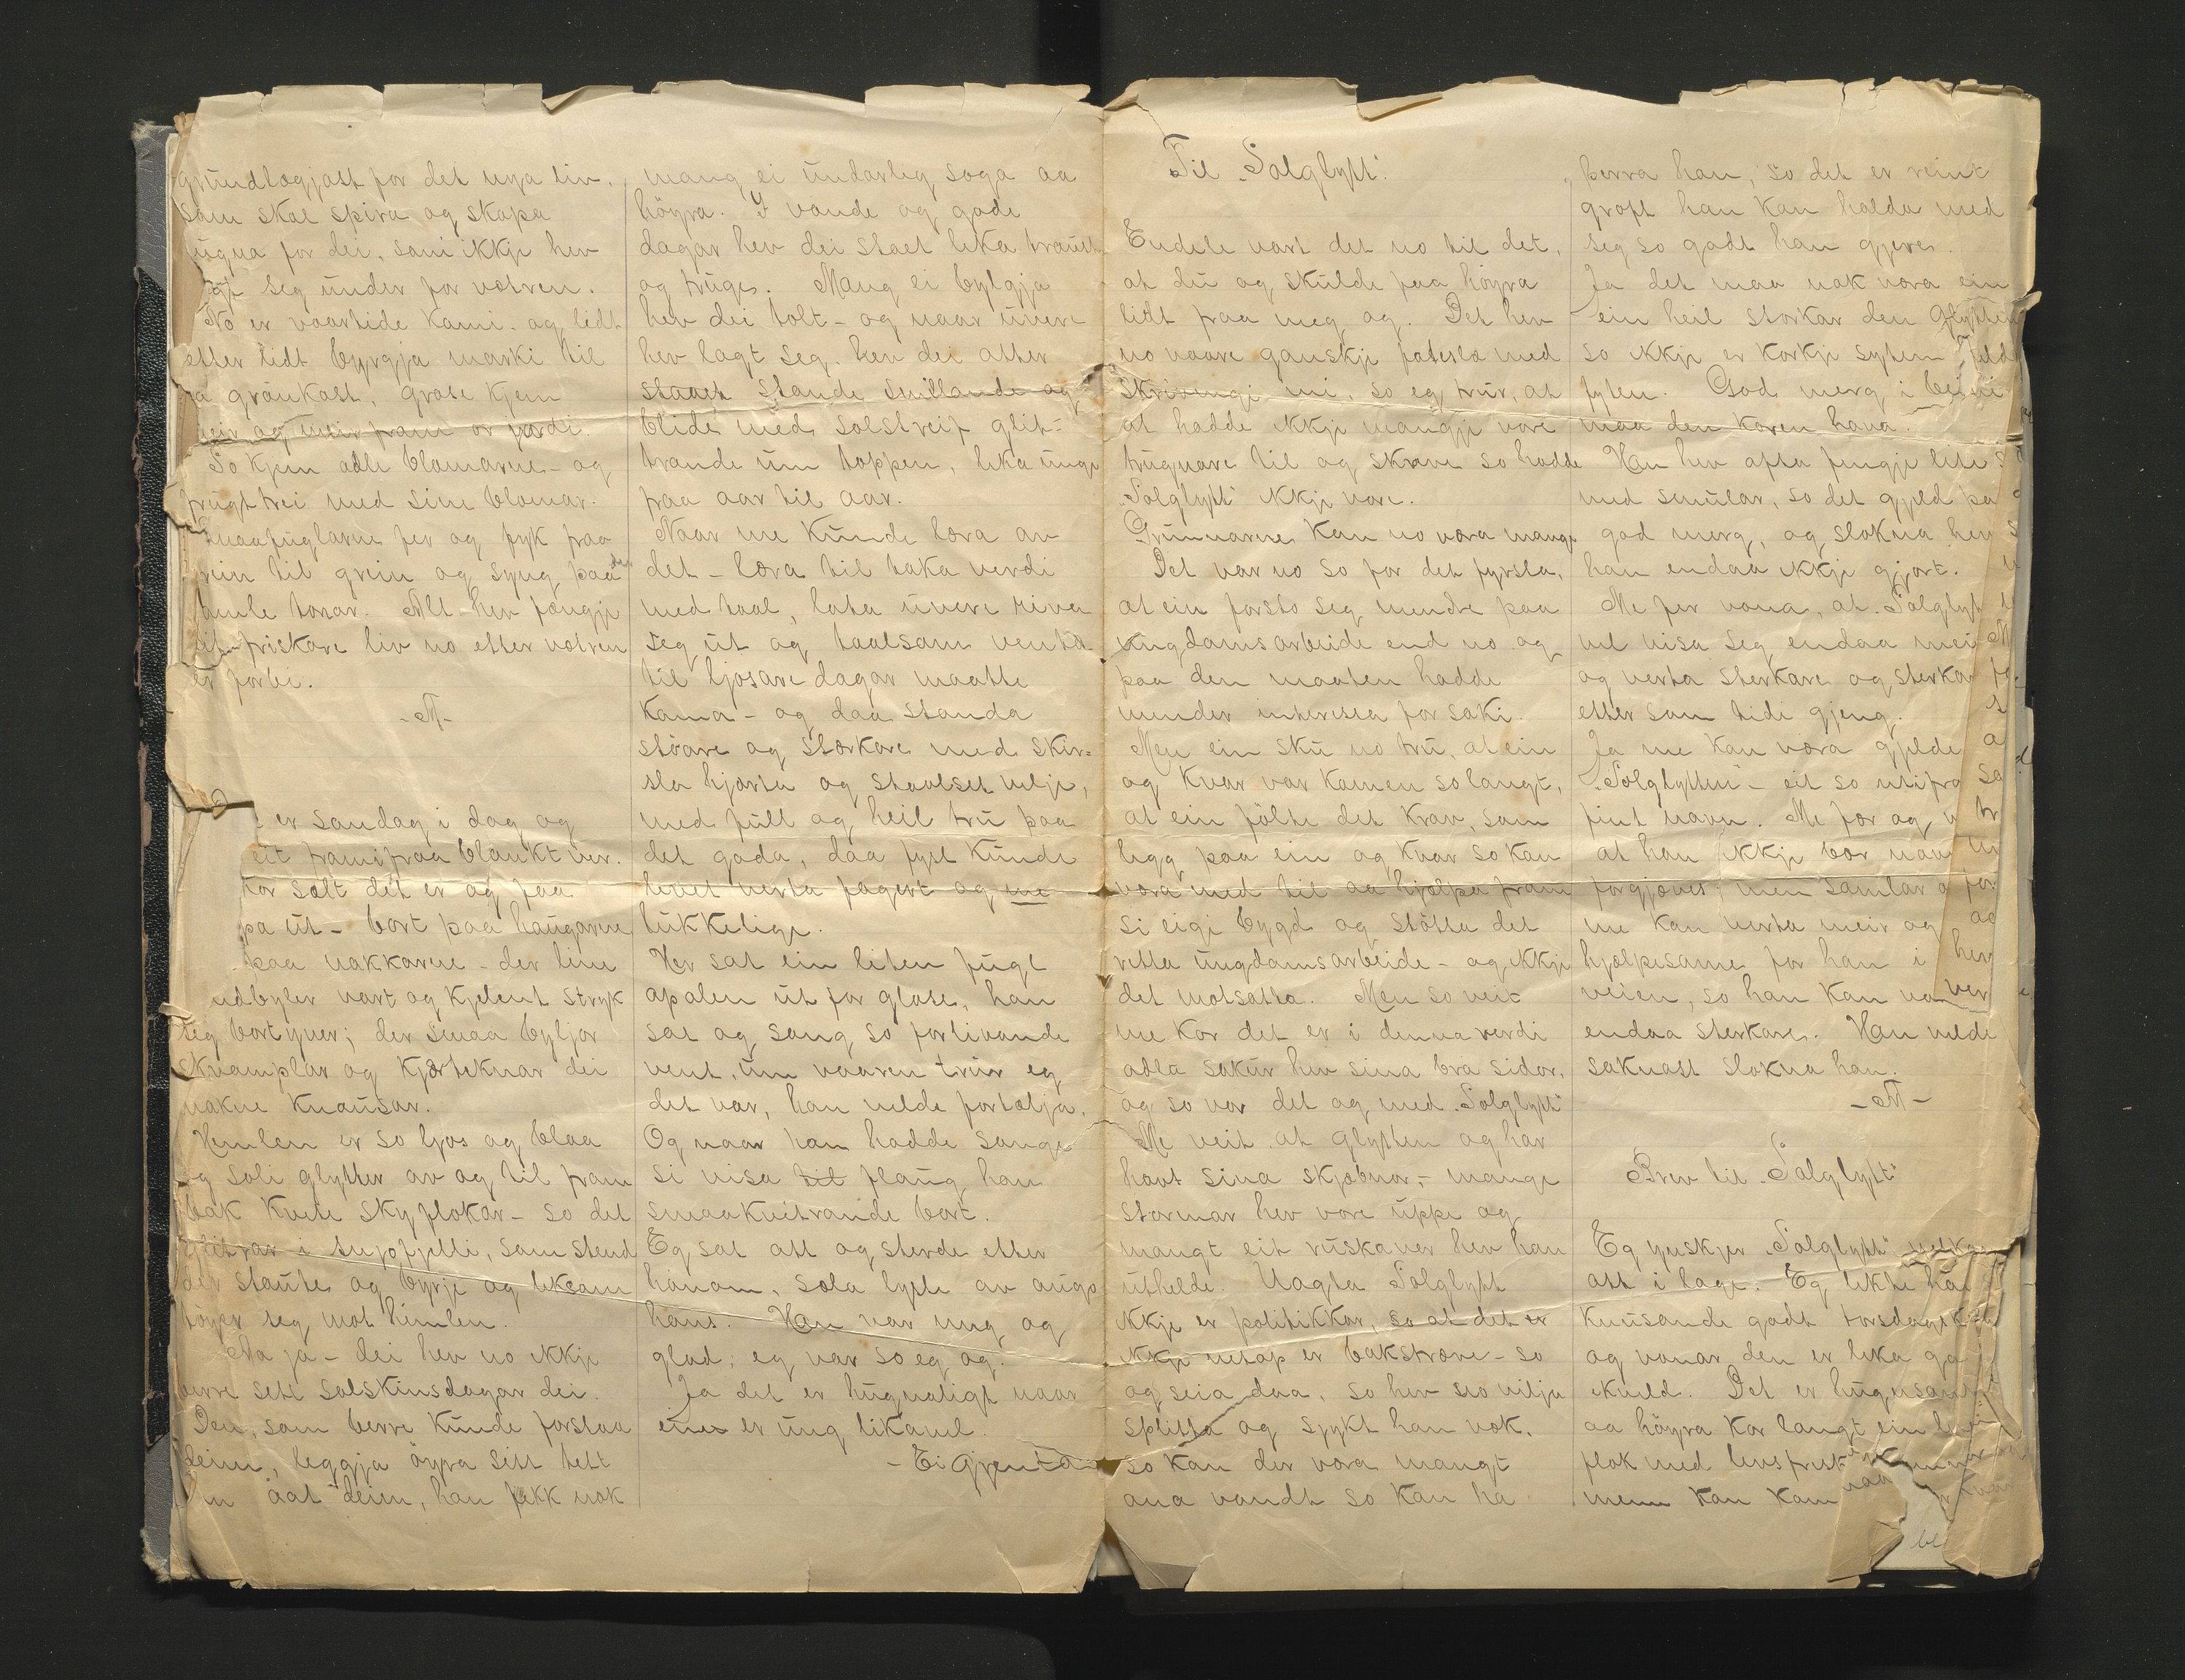 grundlagjast for det nya liv,
som skal spira og skapa
hugna for dei, som ikkje hev
seg under for vetren.
No er vaartide komi. og lidt
etter lidt byrgja marki til
grønkast, grase kjem
meir og meir fram or jordi.
So kjem adle blomarne - og
frugttrei med sine blomar.
Smaafuglarne fer og fyk fraa
grein til grein og syng paa dei
gamle tonar. Alt hev fængje
eit friskare liv no etter vetren
er forbi.
- M -
er sandag i dag og
eit framifraa blankt ver.
kor sælt det er og faa
ut - bort paa haugarne
paa nakkarne - der line
vindbyler vart og kjelent stryk
seg bort yver; der smaa byljor
skvamplar og kjærteknar dei
nakne knausar.
Himlen er so ljos og blaa
og soli glytter av og til fram
bak kvite skyflokar - so det
glitrar i snjofjelli, som stend
der staute og byrje og liksom
tøyer seg mot himlen.
Aa ja - dei hev no ikkje
berre sett solskinsdagar dei.
Den, som berre kunde forstaa
deim, leggja øyra sitt tett
inn aat deim, han fekk nok
mang ei underlig soga aa
høyra. I vonde og gode
dagar hev dei staet lika traust
og truge. Mang ei bylgja
hev dei tolt - og naar uvere
hev lagt seg, hev dei atter
staaet stande smilande og
blide med solstreif glit-
trande um toppen, lika unge
fraa aar til aar.
Naar me kunde læra av
det - læra til taka verdi
med tool, lata uvere riva
seg ut og toolsam venta
til ljosare dagar maatte
koma - og daa standa
støare og sterkare med skir-
sla hjarta og staalset vilje,
med full og heil tru paa
det goda, daa fyst kunde
livet verta fagert og me
lukkelige.
Her sat ein liten fugl
apalen ut for glase, han
sat og song so forlivande
vent, um vaaren trur eg
det var, han vilde fortelja.
Og naar han hadde sunge
si visa tit flaug han
smaakvitrande bort.
Eg sat att og stirde etter
honom, sæla lyste av augo
hans. Han var ung og
glad; eg var so eg og.
Ja det er hugnaligt naar
ein er ung likavel.
- Ei Gjenta
Til "Solglytt".
Endele vart det no til det,
at du og skulde faa høyra
lidt fraa meg og. Det hev
no vaare ganskje fatesla med
skrivingi mi, so eg trur, at
at hadde ikkje mangje vore
trugnare til og skrive so hadde
"Solglytt" ikkje vore.
Grunnarne kan no vera mange
Det var no so for det fyrsta,
at ein forsto seg mindre paa
ungdomsarbeide end no og
paa den maaten hadde
minder interessa for saki.
Men ein sku no tru, at ein
og kvar var komen so langt,
at ein følte det krav, som
ligg paa ein og kvar so kan
vera med til aa hjelpa fram
si eigi bygd og støtta det
retta ungdomsarbeide - og ikkje
det motsatta. Men so veit
me kor det er i denna verdi
adla sakur hev sina bra sidor,
og so var det og med "Solglytt"
Me veit at Glytten og har
havt sina skjæbnor,- mange
stormar hev vore uppe og
mangt eit ruskever hev han
uthelde. Uagta Solglytt
ikkje er politikkar, so at det er
ikkje netop er bakstræve - so
og seia daa, so hev sio vilja
splitta og sjykt han nok.
so kan der vera mangt
ana vondt so kan ha
herra han, so det er reint
grøft han kan halda med
seg so godt han gjerer.
Ja det maa nok vera ein
ein heil storkar den Glytten
so ikkje er korkje syten
fyten. God merg i beini
maa den karen hava.
Han hev ofta fengje lite
med smular, so det gjeld paa
god merg, og slokna hev
han endaa ikkje gjort.
Me fer vona, at "Solglytt
vil visa seg endaa mei
og verta sterkare og sterkar
etter som tidi gjeng.
Ja me kan vera gjilde
"Solglytten" - eit so utifra
fint navn. Me fær og v
at han ikkje bær nav
forgjæves; men samlar o
me kan verta meir og
hjelpesame for han i
veiea, so han kan va
endaa sterkare. Han vilde
saknast slokna han.
- M -
Brev til "Solglytt"
Eg ynskjer "Solglytt" velko
att i lage. Eg likte han
knusande godt torsdagsk
og vonar den er lika go
ikveld. Det er hugnsamt
aa høyra kor langt ein li
flok med livsfrisk
menn kan kom